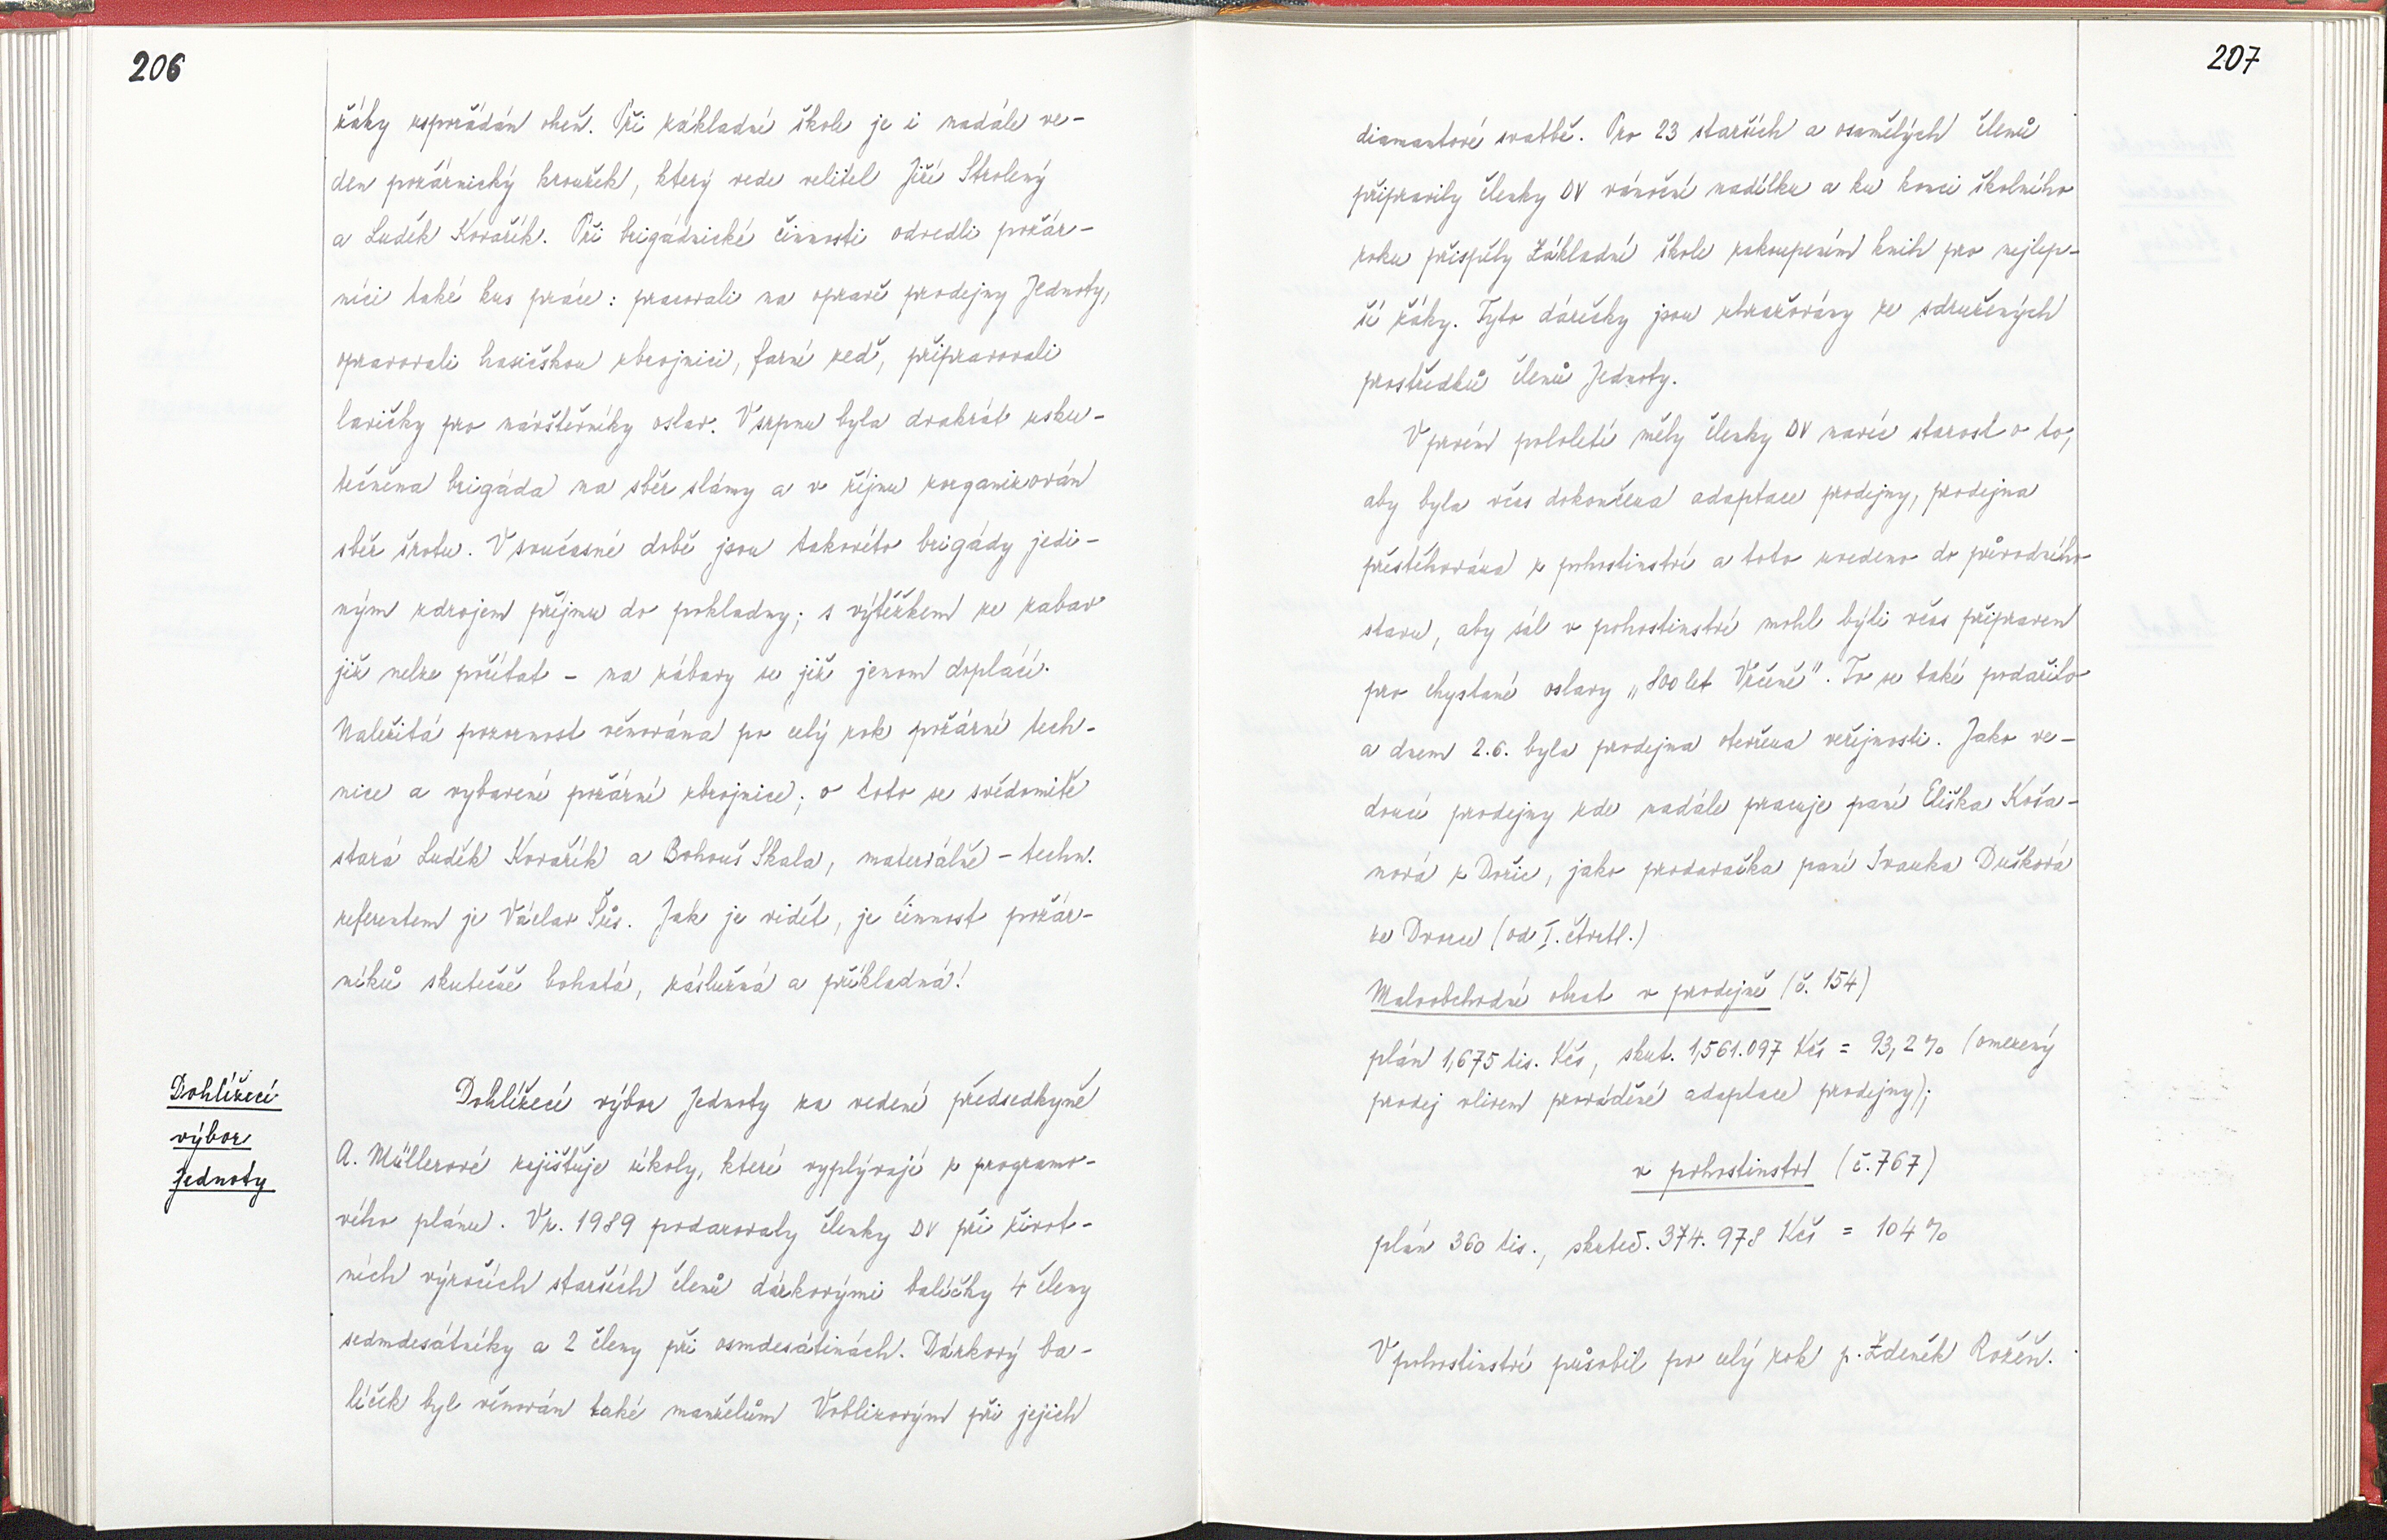 206
žáky uspořádán oheň. Při základní škole je i nadále ve-
den požárnický kroužek, který vede velitel Jiří Strolený
a Luděk Kovařík. Při brigádnické činnosti odvedli požár-
níci také kus práce: pracovali na opravě prodejny Jednoty,
opravovali hasičskou zbrojnici, farní zeď, připravovali
lavičky pro návštěvníky oslav. V srpnu byla dvakrát usku-
tečněna brigáda na sběr slámy a v říjnu zorganizován
sběr šrotu. V současné době jsou takovéto brigády jedi-
ným zdrojem příjmu do pokladny; s výtěžkem ze zábav
již nelze počítat - na zábavy se již jenom doplácí.
Náležitá pozornost věnována po celý rok požární tech-
nice a vybavení požární zbrojnice; o toto se svědomitě
stará Luděk Kovařík a Bohouš Skala, materiálně - techn.
referentem je Václav Šůs. Jak je vidět, je činnost požár-
níků skutečně bohatá, záslužná a příkladná!
Dohlížecí
výbor
Jednoty
Dohlížecí výbor Jednoty za vedení předsedkyně
A. Müllerové zajišťuje úkoly, které vyplývají z programo-
vého plánu. V r. 1989 podarovaly členky DV při život-
ních výročích starších členů dárkovými balíčky 4 členy
sedmdesátníky a 2 členy při osmdesátinách. Dárkový ba-
líček byl věnován také manželům Voblizovým při jejich
207
diamantové svatbě. Pro 23 starších a osamělých členů
připravily členky DV vánoční nadílku a ku konci školního
roku přispěly Základní škole zakoupením knih pro nejlep-
ší žáky. Tyto dárečky jsou uhrazovány ze sdružených
prostředků členů Jednoty.
V prvém pololetí měly členky DV navíc starost o to,
aby byla včas dokončena adaptace prodejny, prodejna
přestěhována z pohostinství a toto uvedeno do původního
stavu, aby sál v pohostinství mohl býti včas připraven
pro chystané oslavy „800 let Vrčeně". To se také podařilo
a dnem 2.6. byla prodejna otevřena veřejnosti. Jako ve-
doucí prodejny zde nadále pracuje paní Eliška Koša-
nová z Dvorce, jako prodavačka paní Ivanka Dušková
ze Dvorce (od I. čtvrtl.)
Maloobchodní obrat v prodejně (č. 154)
plán 1,675 tis. Kčs, skut. 1,561.097 Kčs = 93,2% (omezený
prodej vlivem prováděné adaptace prodejny);
v pohostinství (č. 767)
plán 360 tis., skuteč. 374.978 Kčs = 104%
V pohostinství působil po celý rok p. Zdeněk Rožeň.